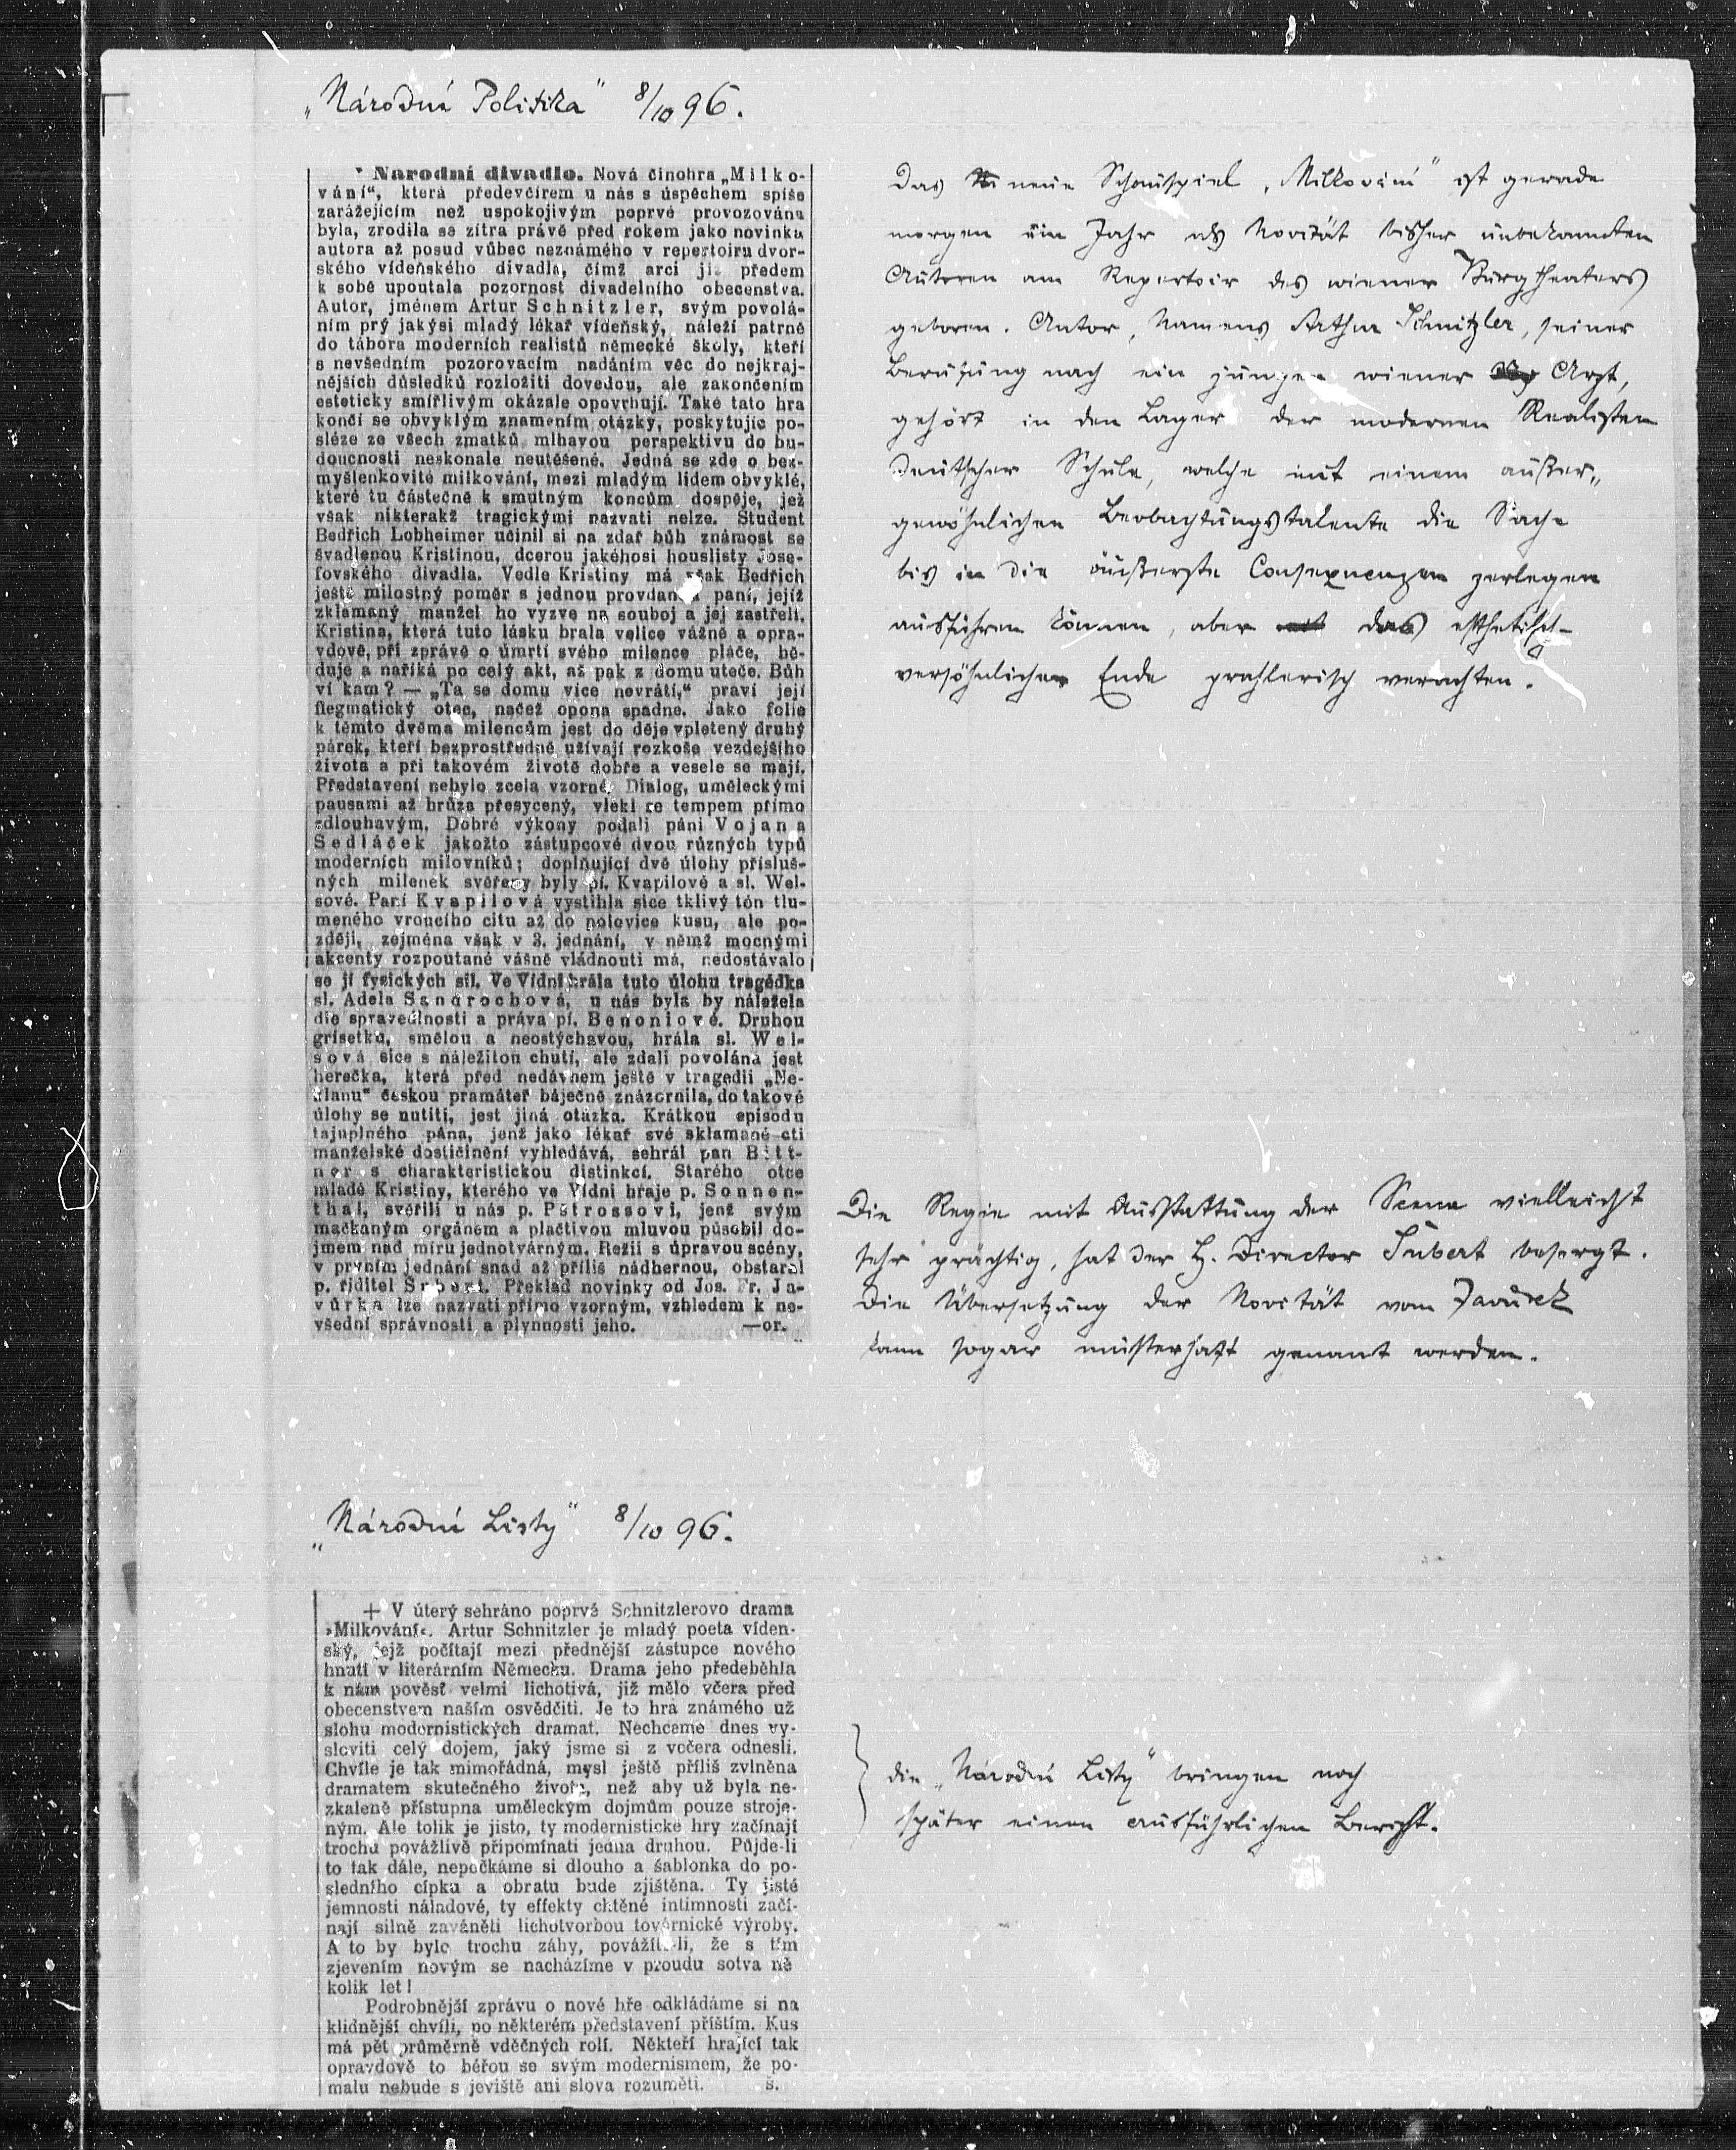 „Národní Politika" 8/10 96.
* Narodní divadlo. Nová činohra „Milko-
vání“, která předevčírem u nás s úspěchem spíše
zarážejícím než uspokojivým poprvé provozována
byla, zrodila se zítra právě před rokem jako novinka
autora až posud vůbec neznámého v repertoiru dvor-
ského vídeňského divadla, čímž arci již předem
k sobě upoutala pozornost divadelního obecenstva.
Autor, jménem Artur Schnitzler, svým povolá-
ním prý jakýsi mladý lékař vídeňský, náleží patrně
do tábora moderních realistů německé školy, kteří
s nevšedním pozorovacím nadáním věc do nejkraj-
nějších důsledků rozložiti dovedou, ale zakončením
esteticky smířlivým okázale opovrhují. Také tato hra
končí se obvyklým znamením otázky, poskytujíc po-
sléze ze všech zmatků mlhavou perspektivu do bu-
doucnosti neskonale neutěšené. Jedná se zde o bez-
myšlenkovité milkování, mezi mladým lidem obvyklé,
které tu částečně k smutným koncům dospěje, jež
však nikterakž tragickými nazvati nelze. Student
Bedřich Lobheimer učinil si na zdař bůh známost se
švadlenou Kristinou, dcerou jakéhosi houslisty Jose-
fovského divadla. Vedle Kristiny má však Bedřich
ještě milostný poměr s jednou provdanou paní, jejíž
zklamaný manžel ho vyzve na souboj a jej zastřelí.
Kristina, která tuto lásku brala velice vážně a opra-
vdově, při zprávě o úmrtí svého milence pláče, bě-
duje a naříká po celý akt, až pak z domu uteče. Bůh
ví kam? — „Ta se domu více nevrátí,“ praví její
flegmatický otec, načež opona spadne. Jako folie
k těmto dvěma milencům jest do děje vpletený druhý
párek, kteří bezprostředně užívají rozkoše vezdejšího
života a při takovém životě dobře a vesele se mají.
Představení nebylo zcela vzorné. Dialog, uměleckými
pausami až hrůza přesycený, vlekl se tempem přímo
zdlouhavým. Dobré výkony podali páni Vojan a
Sedláček jakožto zástupcové dvou různých typů
moderních milovníků; doplňující dvě úlohy přísluš-
ných milenek svěřeny byly pí. Kvapilové a sl. Wel-
sové. Paní Kvapilová vystihla sice tklivý tón tlu-
meného vroucího citu až do polovice kusu, ale po-
zději, zejména však v 3. jednání, v němž mocnými
akcenty rozpoutané vášně vládnouti má, nedostávalo
se jí fysických sil. Ve Vídni hrála tuto úlohu tragédka
sl. Adela Sandrochová, u nás byla by náležela
dle spravedlnosti a práva pí. Benoniové. Druhou
grisetku, smělou a neostýchavou, hrála sl. Wel-
sová sice s náležitou chutí, ale zdali povolána jest
herečka, která před nedávnem ještě v tragedii „Ne-
klanu“ českou pramáteř báječně znázornila, do takové
úlohy se nutiti, jest jiná otázka. Krátkou episodu
tajuplného pána, jenž jako lékař své sklamané cti
manželské dostičinění vyhledává, sehrál pan Bitt-
ner s charakteristickou distinkcí. Starého otce
mladé Kristiny, kterého ve Vídni hraje p. Sonnen-
thal, svěřili u nás p. Pštrossovi, jenž svým
mačkaným orgánem a plačtivou mluvou působil do-
jmem nad míru jednotvárným. Režii s úpravou scény,
v prvním jednání snad až příliš nádhernou, obstaral
p. řiditel Šubert. Překlad novinky od Jos. Fr. Ja-
vůrka lze nazvati přímo vzorným, vzhledem k ne-
všední správnosti a plynnosti jeho. —or.
Das neue Schauspiel „Milkování" ist gerade
morgen ein Jahr als Novität bisher unbekannten
Autoren am Repertoir des wiener Burgtheaters
geboren. Autor, Namens Arthur Schnitzler, seiner
Berufung nach ein junger wiener Arzt,
gehört in den Lager der modernen Realisten
deutscher Schule, welche mit einem außer„
gewöhnlichen Beobachtungstalente die Sache
bis in die äußerste Consequenzen zerlegen
ausführen können, aber das esthetisch-
versöhnlichen Ende prahlerisch verachten.
Die Regie mit Ausstattung der Scene vielleicht
sehr prächtig, hat der H. Director Šubert besorgt.
Die Übersetzung der Novität vom Javůrek
kann sogar musterhaft genant werden.
„Národní Listy" 8/10 96.
+ V úterý sehráno poprvé Schnitzlerovo drama
»Milkování«. Artur Schnitzler je mladý poeta víden-
ský, jejž počítají mezi přednější zástupce nového
hnutí v literárním Německu. Drama jeho předeběhla
k nám pověst velmi lichotivá, již mělo včera před
obecenstvem naším osvědčiti. Je to hra známého už
slohu modernistických dramat. Nechceme dnes vy-
sloviti celý dojem, jaký jsme si z večera odnesli.
Chvíle je tak mimořádná, mysl ještě příliš zvlněna
dramatem skutečného života, než aby už byla ne-
zkaleně přístupna uměleckým dojmům pouze stroje-
ným. Ale tolik je jisto, ty modernistické hry začínají
trochu povážlivě připomínati jedna druhou. Půjde-li
to tak dále, nepočkáme si dlouho a šablonka do po-
sledního cípku a obratu bude zjištěna. Ty jisté
jemnosti náladové, ty effekty chtěné intimnosti začí-
nají silně zaváněti lichotvorbou továrnické výroby.
A to by bylo trochu záhy, povážíte-li, že s tím
zjevením novým se nacházíme v proudu sotva ně
kolik let!
Podrobnější zprávu o nové hře odkládáme si na
klidnější chvíli, po některém představení příštím. Kus
má pět průměrně vděčných rolí. Někteří hrající tak
opravdově to béřou se svým modernismem, že po-
malu nebude s jeviště ani slova rozuměti. š.
die „Národní Listy" bringen noch
später einen ausführlichen Bericht.